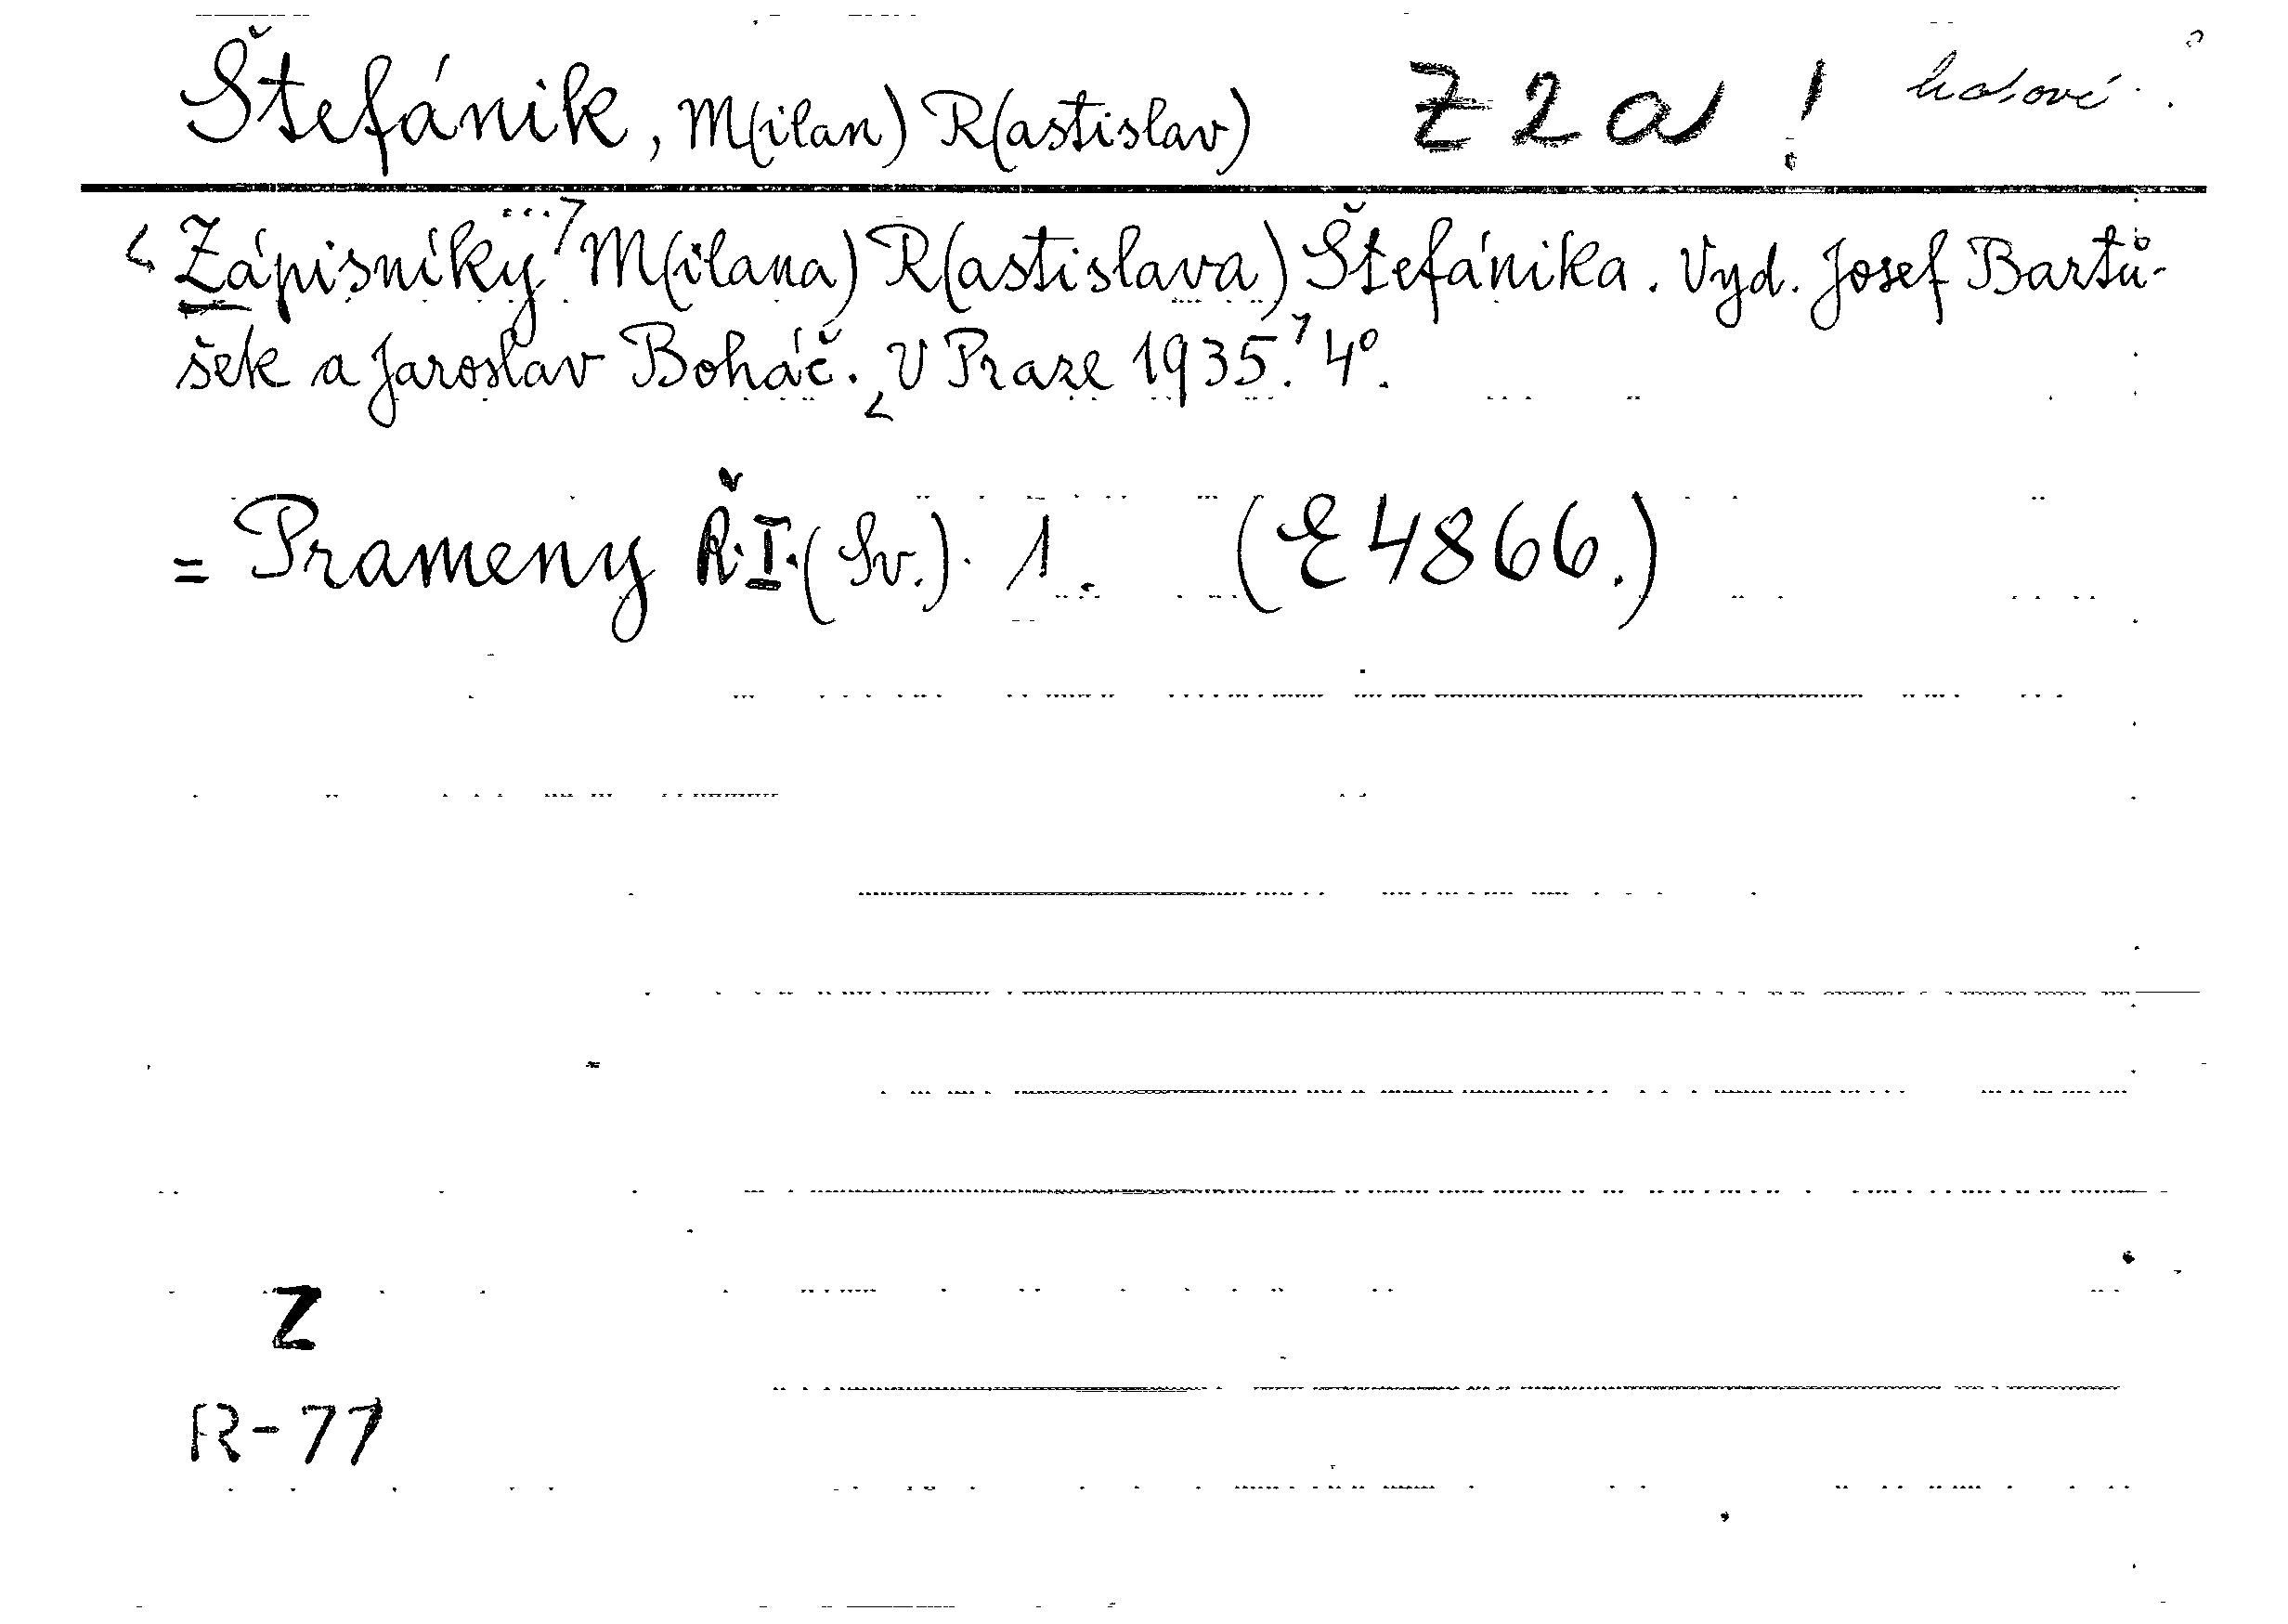 Štefánik, M(ilan) R(astislav) Z 2 a !
Zápisníky ... M(ilana) R(astislava) Štefánika. Vyd. Josef Bartů-
šek a Jaroslav Boháč. V Praze 1935. 4°.
= Prameny Ř. I. (Sv.). 1. (E 4866.)
Z
R-77